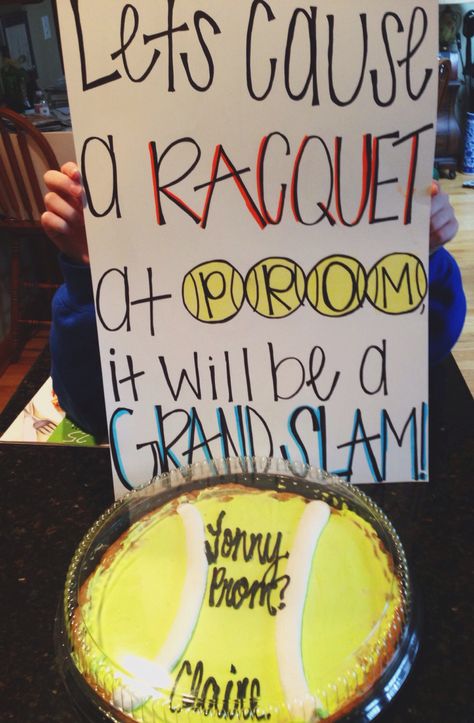 Lets cause
a RACQUET
at PROM,
it will be a
GRAND SLAM!
Jonny
Prom?
Claire